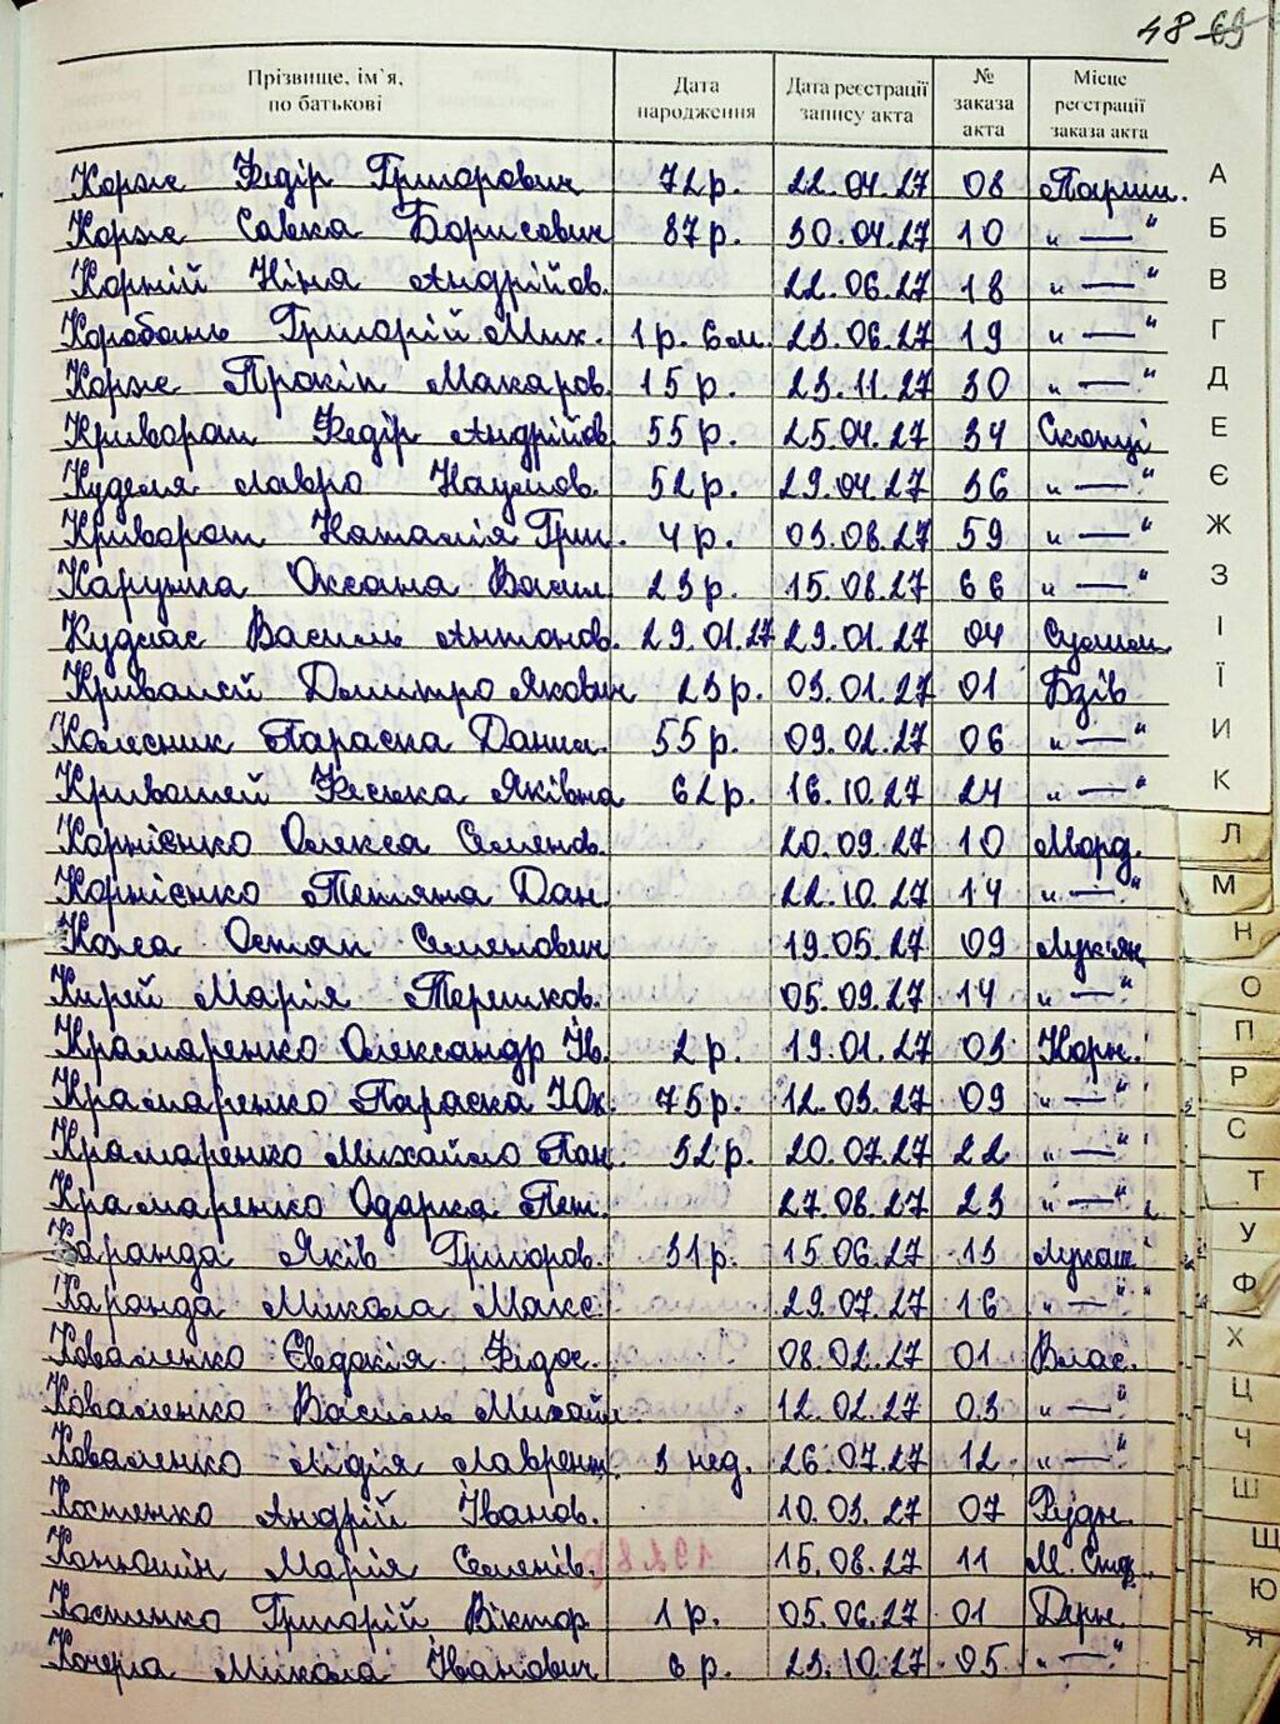 48 69
Прізвище, ім`я, по батькові Дата народження Дата реєстрації запису акта № заказа акта Місце реєстрації заказа акта
Корж Федір Григорович 72р. 22.04.27 08 Париш.
Корж Савка Борисович 87р. 30.04.27 10 „—“
Корній Ніна Андрійов. 22.06.27 18 „—“
Коробань Григорій Мих. 1р. 6м. 23.06.27 19 „—“
Корж Прокіп Макаров. 15р. 23.11.27 30 „—“
Криворот Федір Андрійов. 55р. 25.04.27 34 Скопці
Куделя Лавро Наумов. 52р. 29.04.27 36 „—“
Криворот Наталія Григ. 4р. 03.08.27 59 „—“
Карупка Оксана Васил 23р. 15.08.27 66 „—“
Кудлас Василь Антонов. 29.01.27 29.01.27 04
Кривошей Дмитро Якович 23р. 03.01.27 01 Бзів
Колесник Параска Данил. 55р. 09.02.27 06 „—“
Кривошей Феська Яківна 62р. 16.10.27 24 „—“
Корнієнко Олекса Семенов. 20.09.27 10 Морд.
Корнієнко Тетяна Дан. 22.10.27 14 „—“
Остап Семенович 19.05.27 09 Лук'ян
Кирей Марія Терешков. 05.09.27 14 „—“
Крамаренко Олександр Ів. 2р. 19.01.27 03 Корн.
Крамаренко Параска Юх. 75р. 12.03.27 09 „—“
Крамаренко Михайло Пан. 32р. 20.07.27 22 „—“
Крамаренко Одарка Пет. 27.08.27 23 „—“
Каранда Яків Григоров. 31р. 15.06.27 13 Лукаш
Каранда Микола Макс. 29.07.27 16 „—“
Коваленко Євдокія Федос. 08.02.27 01 Влас.
Коваленко Василь Михайл. 12.02.27 03 „—“
Коваленко Лідія Лаврент. 3 нед. 26.07.27 12 „—“
Костенко Андрій Іванов. 10.03.27 07 Рудн.
Марія Семенів. 15.08.27 11 М.
Костенко Григорій Віктор 1р. 05.06.27 01 Дерн.
Кочерга Микола Іванович 6р. 23.10.27 05 „—“
А
Б
В
Г
Д
Е
Є
Ж
З
І
Ї
И
К
Л
М
Н
О
П
Р
С
Т
У
Ф
Х
Ц
Ч
Ш
Щ
Ю
Я